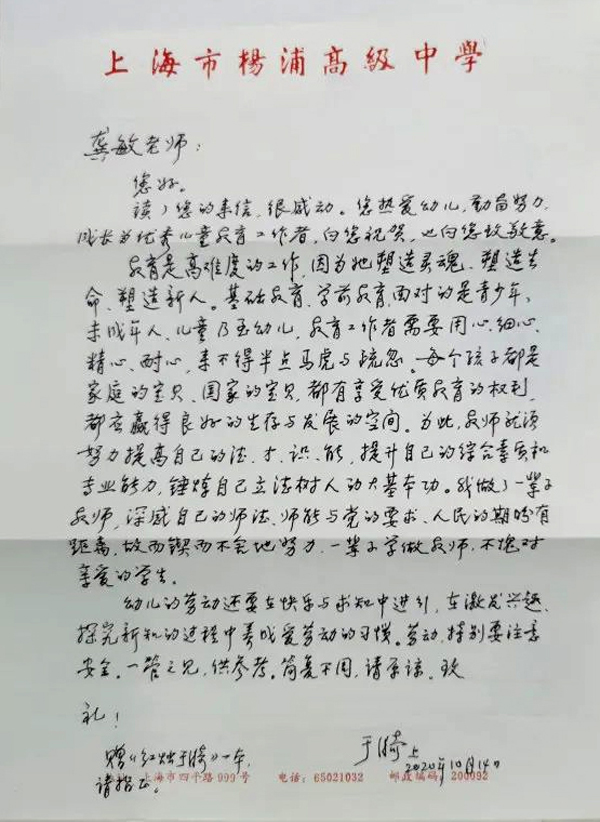 上海市杨浦高級中學
龚敏老师：
您好。
读了您的来信，很感动。您热爱幼儿，勤奋努力，
成长为优秀儿童教育工作者，向您祝贺，也向您致敬意。
教育是高难度的工作，因为她塑造灵魂、塑造生
命、塑造新人。基础教育、学前教育，面对的是青少年、
未成年人、儿童乃至幼儿，教育工作者需要用心、细心、
精心、耐心，来不得半点马虎与疏忽。每个孩子都是
家庭的宝贝、国家的宝贝，都有享受优质教育的权利，
都应赢得良好的生存与发展的空间。为此，教师就须
努力提高自己的德、才、识、能，提升自己的综合素质和
专业能力，锤炼自己立德树人的大基本功。我做了一辈子
教师，深感自己的师德、师能与党的要求、人民的期盼有
距离，故而锲而不舍地努力，一辈子学做教师，不愧对
亲爱的学生。
幼儿的劳动还要在快乐与求知中进行，在激发兴趣、
探究新知的过程中养成爱劳动的习惯。劳动，特别要注意
安全。一管之见，供参考。简复不周，请原谅。致
礼！
于漪上
2020年10月14日
赠《红烛于漪》一本，
请指正。
地址：上海市四平路999号 电话：65021032 邮政编码：200092